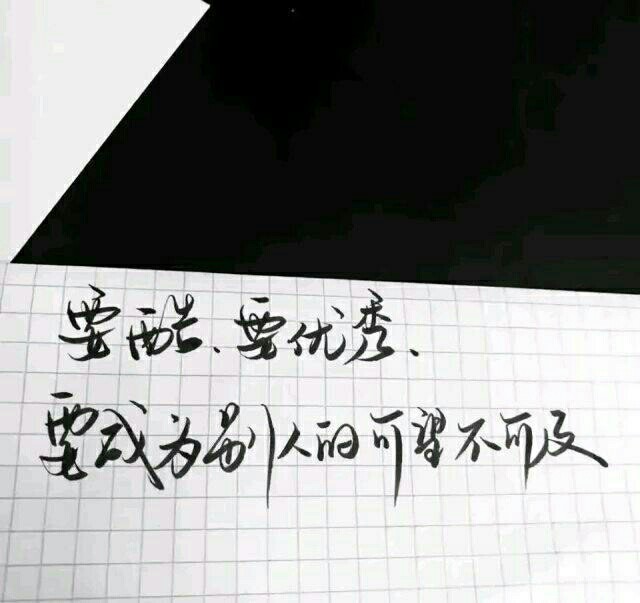 要酷、要优秀、
要成为别人的可望不可及